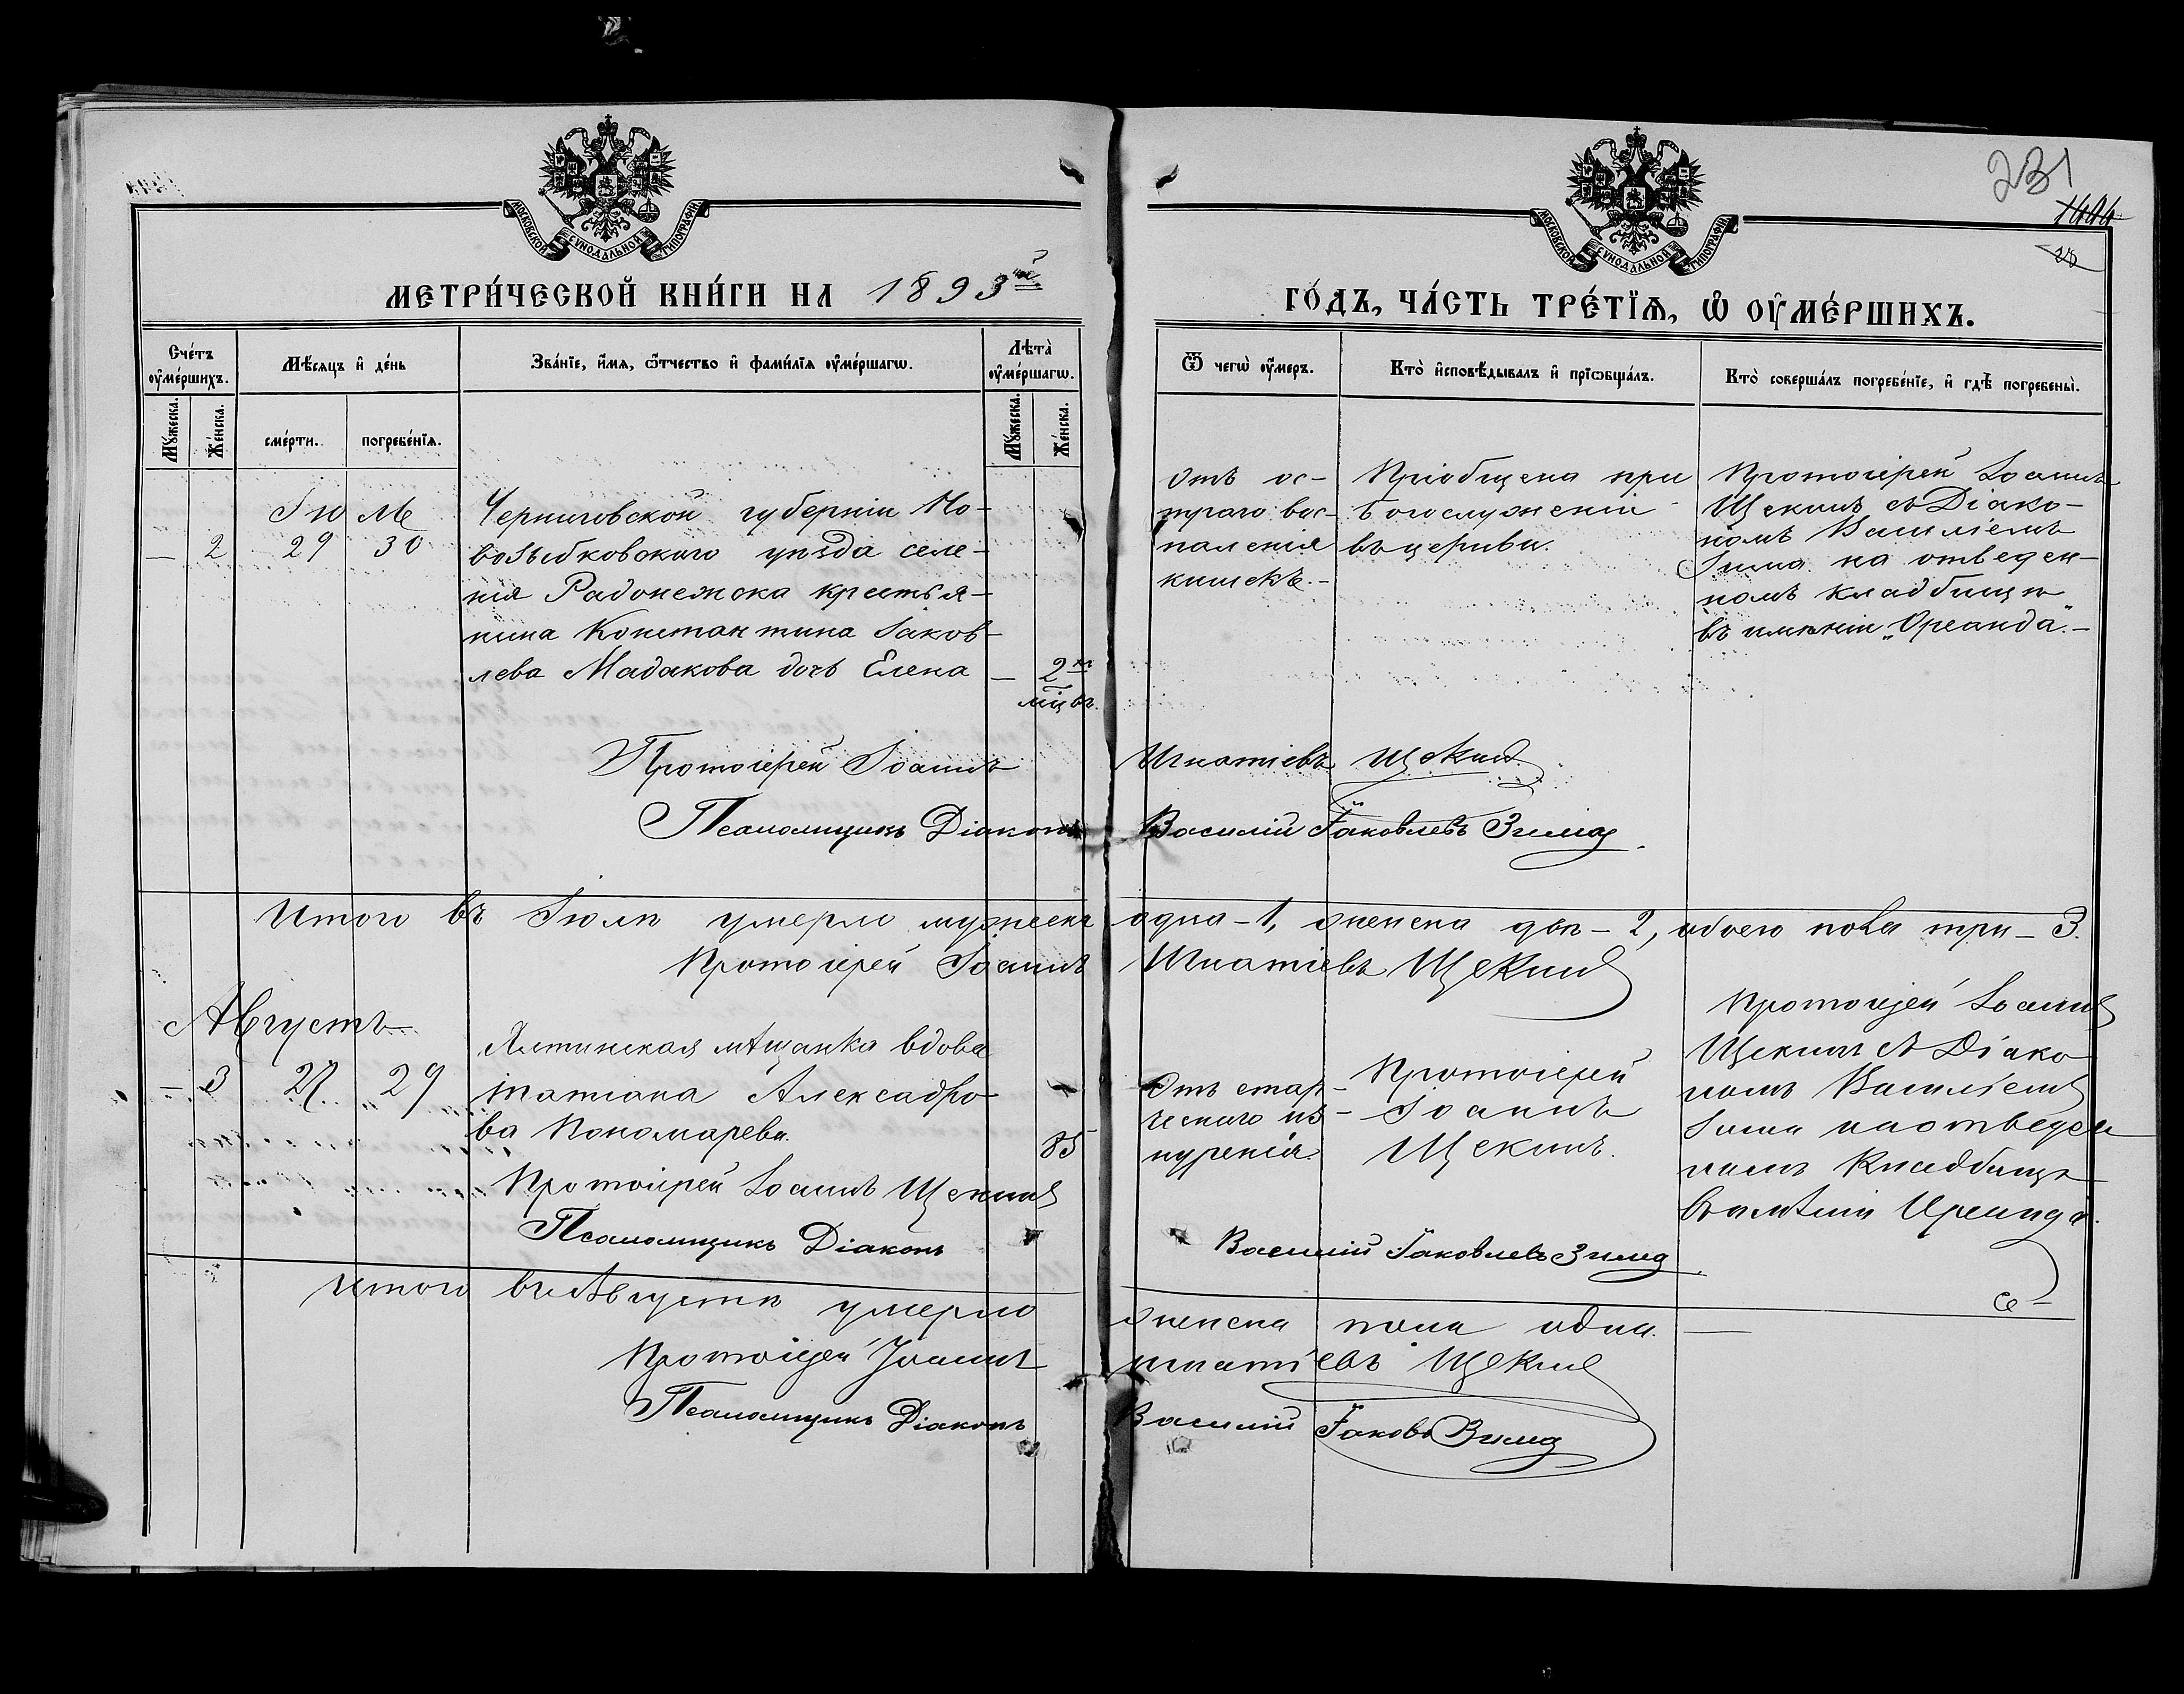 231
1444
МОСКОВСКОЙ СѴНОДАЛЬНОЙ ТИПОГРАФІИ
МОСКОВСКОЙ СѴНОДАЛЬНОЙ ТИПОГРАФІИ
МЕТРИ́ЧЕСКОЙ КНИ́ГИ НА 1893й
ГО́ДЪ, ЧА́СТЬ ТРЕ́ТЇѦ, Ѽ ОУ҆МЕ́РШИХЪ.
Сче́тъ оу҆ме́ршихъ.
Мѣ́сяцъ и҆ де́нь
Зва́нїе, и҆́мѧ, ѻ҆́тчество и҆ фамилїѧ оу҆ме́ршагѡ.
Лѣта̀ оу҆ме́ршагѡ.
Ѿ чегѡ̀ оу҆́меръ.
Кто̀ и҆сповѣ́дывалъ и҆ прїѡбща́лъ.
Кто̀ соверша́лъ погребе́нїе, и҆ гдѣ̀ погребены̀.
Мꙋ́жеска.
Же́нска.
сме́рти.
погребе́нїѧ.
Мꙋ́жеска.
Же́нска.
Іюль
— 2 29 30
Черниговской губерніи Но-
возыбковскаго уѣзда селе-
нія Радонежска крестья-
нина Константина Іаков-
лева Мадакова дочь Елена
— 2хъ
мцвъ.
Отъ ос-
траго вос-
паленія
кишекъ.-
Пріобщена при
Богослуженіи
въ церкви.
Протоіерей Іоаннъ
Щекинъ съ Діако-
номъ Василіемъ
Зима на отведен-
номъ кладбищѣ
въ имѣніи „Ореанда".-
Протоіерей Іоаннъ Игнатіевъ Щекинъ
Псаломщикъ Діаконъ Василій Іаковлевъ Зима
Итого въ Іюлѣ умерло мужеска одна - 1, женска двѣ - 2, обоего пола три - 3.
Протоіерей Іоаннъ Игнатіевъ Щекинъ
Августъ
— 3 27 29
Ялтинская мѣщанка вдова
Татіана Алексадро-
ва Пономарева.
85
Отъ стар-
ческаго из-
нуренія.
Протоіерей
Іоаннъ
Щекинъ.
Протоіерей Іоаннъ
Щекинъ съ Діако
номъ Василіемъ
Зима на отведен
номъ Кладбищѣ
въ имѣніи Ореанда.
Протоіерей Іоаннъ Щекинъ
Псаломщикъ Діаконъ Василій Іаковлевъ Зима
Итого въ Августѣ умерло женска пола одна. —
Протоіерей Іоаннъ Игнатіевъ Щекинъ
Псаломщикъ Діаконъ Василій Іаковъ Зима